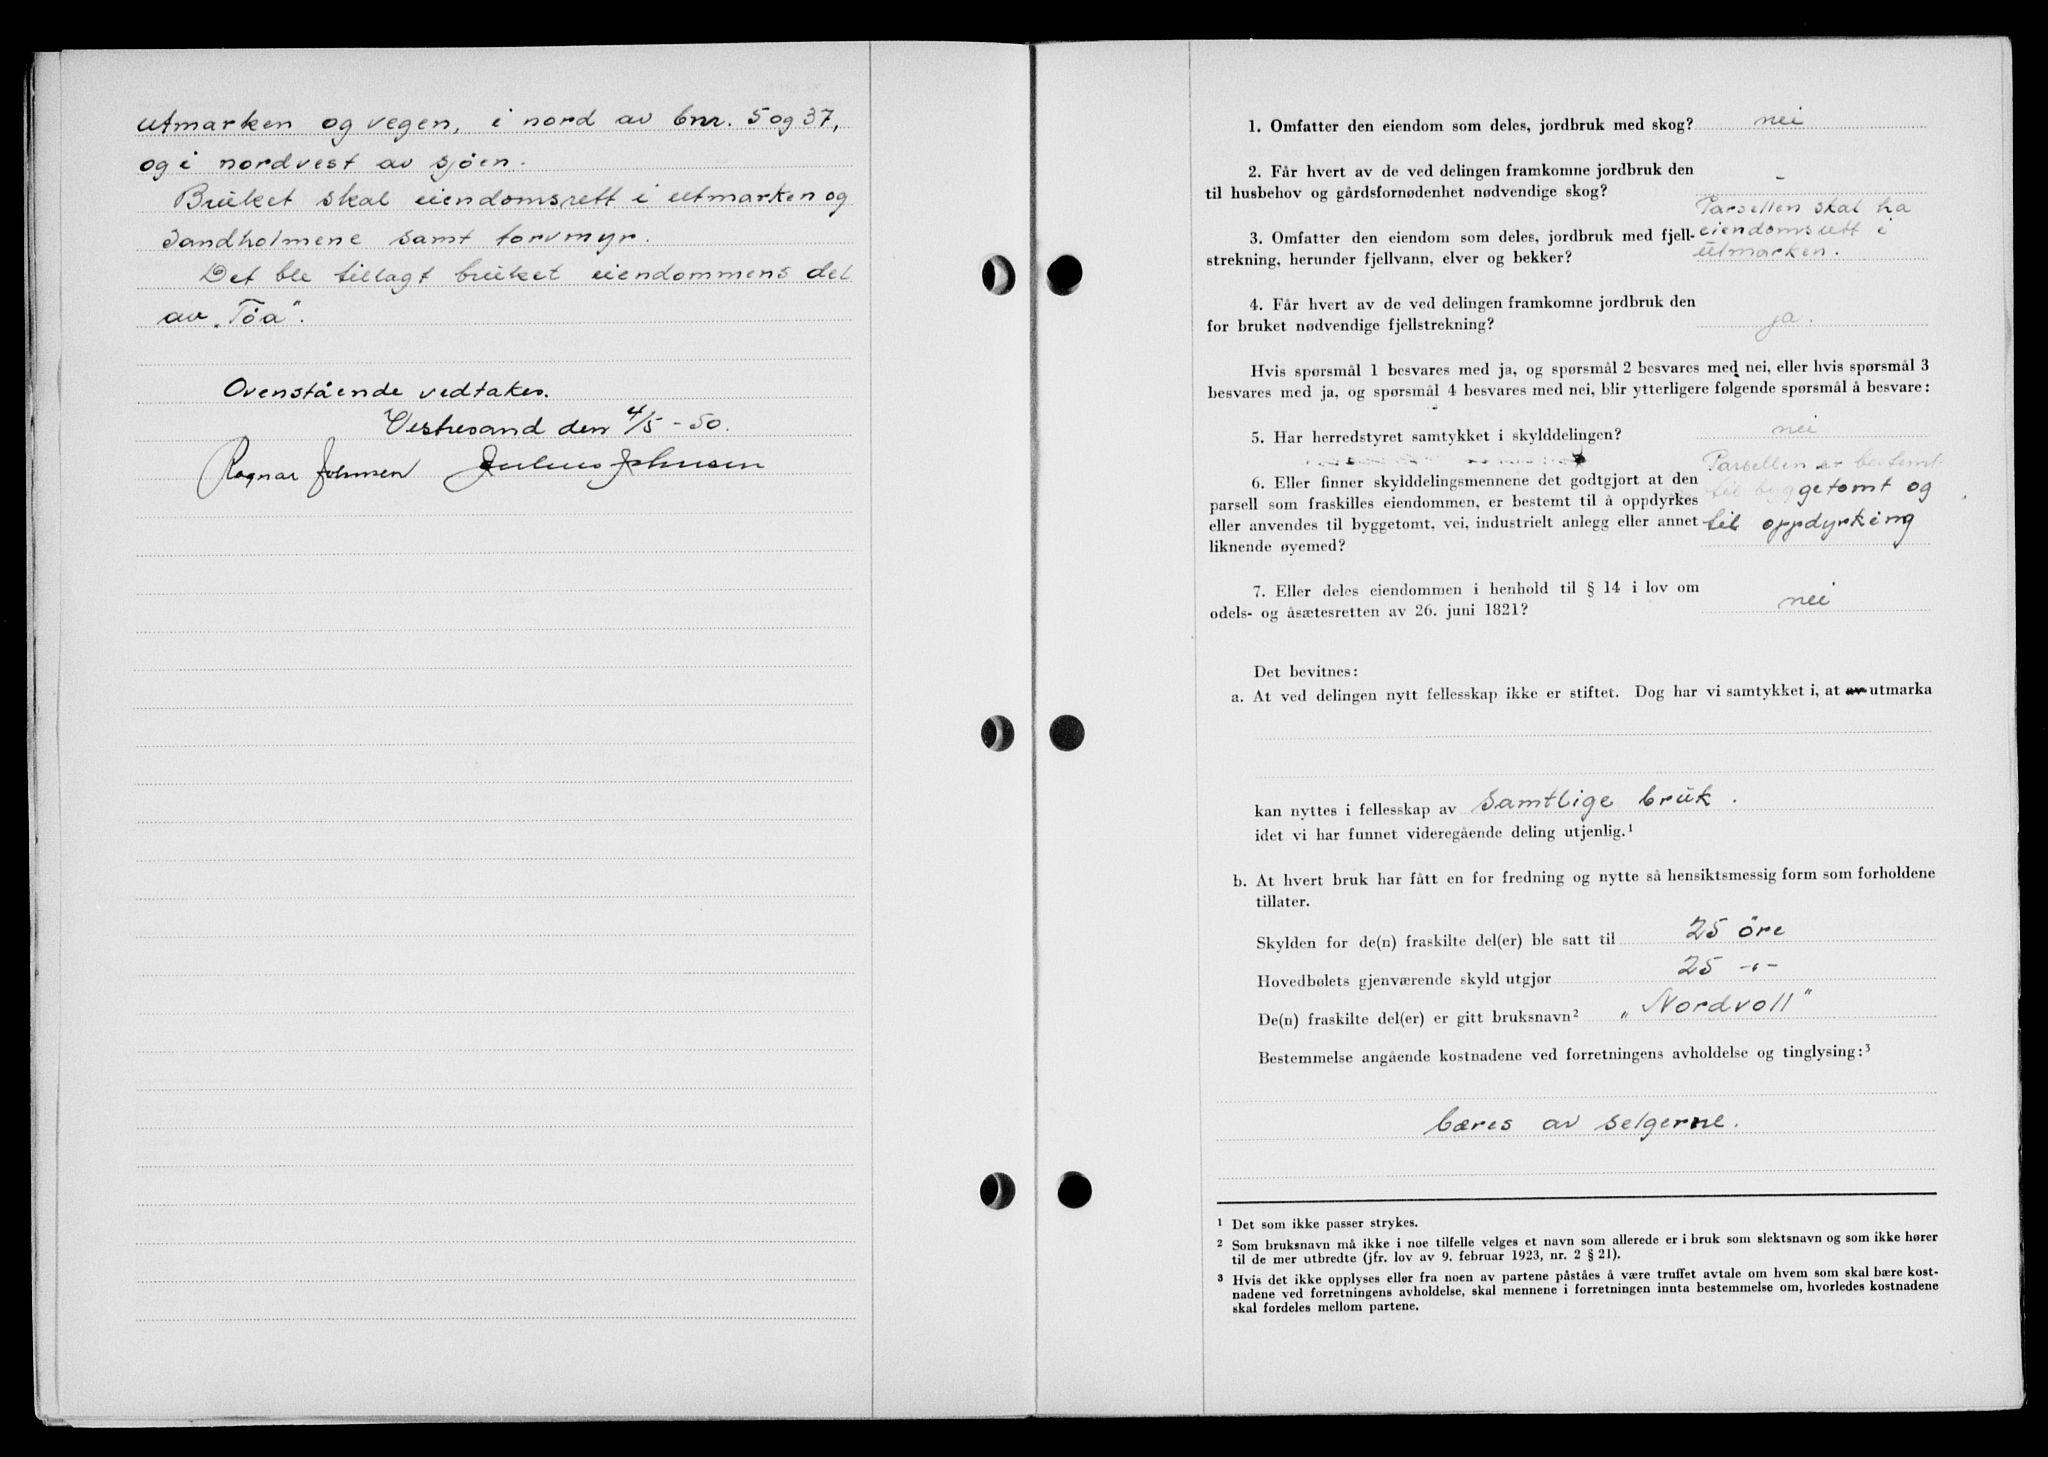 utmarken og vegen, i nord av bnr. 5 og 37,
og i nordvest av sjøen.
Bruket skal eiendomsrett i utmarken og
Sandholmene samt torvmyr.
Det ble tillagt bruket eiendommens del
av „Töa".
Ovenstående vedtakes.
Vestresand den 4/5 - 50.
Ragnar Johnsen Julius Johnsen
1. Omfatter den eiendom som deles, jordbruk med skog? nei
2. Får hvert av de ved delingen framkomne jordbruk den
til husbehov og gårdsfornødenhet nødvendige skog? -
Parsellen skal ha
3. Omfatter den eiendom som deles, jordbruk med fjell- eiendomsrett i
strekning, herunder fjellvann, elver og bekker? utmarken.
4. Får hvert av de ved delingen framkomne jordbruk den
for bruket nødvendige fjellstrekning? ja.
Hvis spørsmål 1 besvares med ja, og spørsmål 2 besvares med nei, eller hvis spørsmål 3
besvares med ja, og spørsmål 4 besvares med nei, blir ytterligere følgende spørsmål å besvare:
5. Har herredstyret samtykket i skylddelingen? nei
Parsellen er bestemt
6. Eller finner skylddelingsmennene det godtgjort at den
parsell som fraskilles eiendommen, er bestemt til å oppdyrkes til byggetomt og
eller anvendes til byggetomt, vei, industrielt anlegg eller annet til oppdyrking
liknende øyemed?
7. Eller deles eiendommen i henhold til § 14 i lov om
odels- og åsætesretten av 26. juni 1821? nei
Det bevitnes:
a. At ved delingen nytt fellesskap ikke er stiftet. Dog har vi samtykket i, at av utmarka
kan nyttes i fellesskap av samtlige bruk.
idet vi har funnet videregående deling utjenlig.¹
b. At hvert bruk har fått en for fredning og nytte så hensiktsmessig form som forholdene
tillater.
Skylden for de(n) fraskilte del(er) ble satt til 25 öre
Hovedbølets gjenværende skyld utgjør 25 -"-
De(n) fraskilte del(er) er gitt bruksnavn² „Nordvoll"
Bestemmelse angående kostnadene ved forretningens avholdelse og tinglysing:³
bæres av selgerne.
¹ Det som ikke passer strykes.
² Som bruksnavn må ikke i noe tilfelle velges et navn som allerede er i bruk som slektsnavn og som ikke hører
til de mer utbredte (jfr. lov av 9. februar 1923, nr. 2 § 21).
³ Hvis det ikke opplyses eller fra noen av partene påståes å være truffet avtale om hvem som skal bære kost-
nadene ved forretningens avholdelse, skal mennene i forretningen innta bestemmelse om, hvorledes kostnadene
skal fordeles mellom partene.